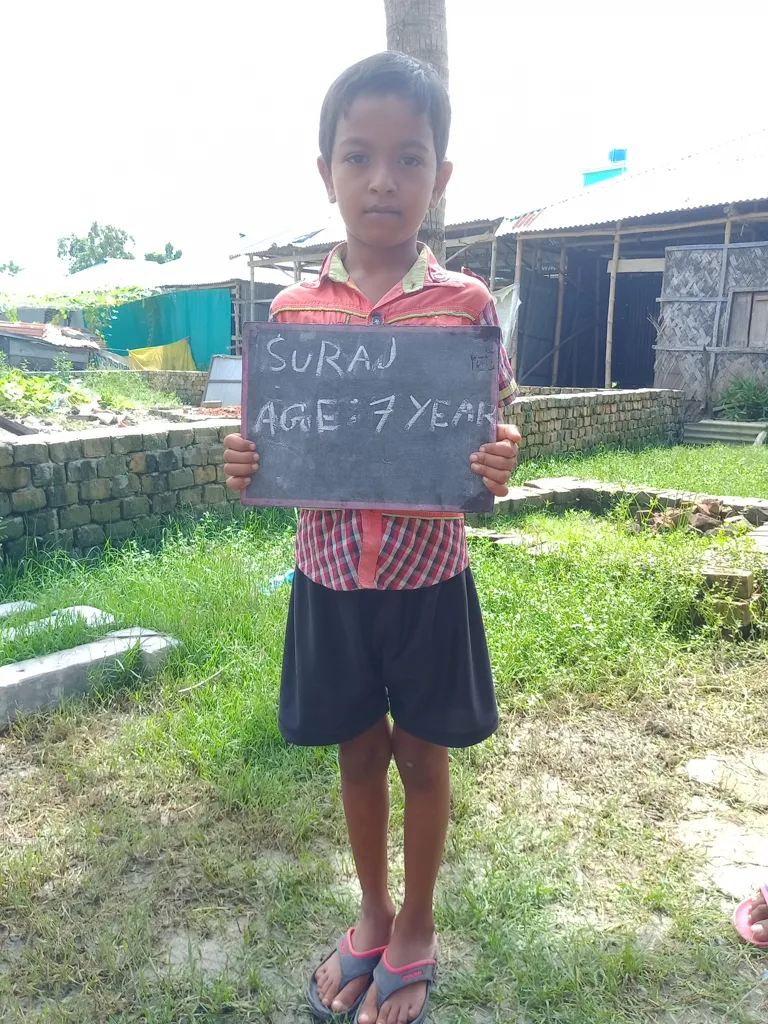 SURAJ
AGE: 7 YEAR